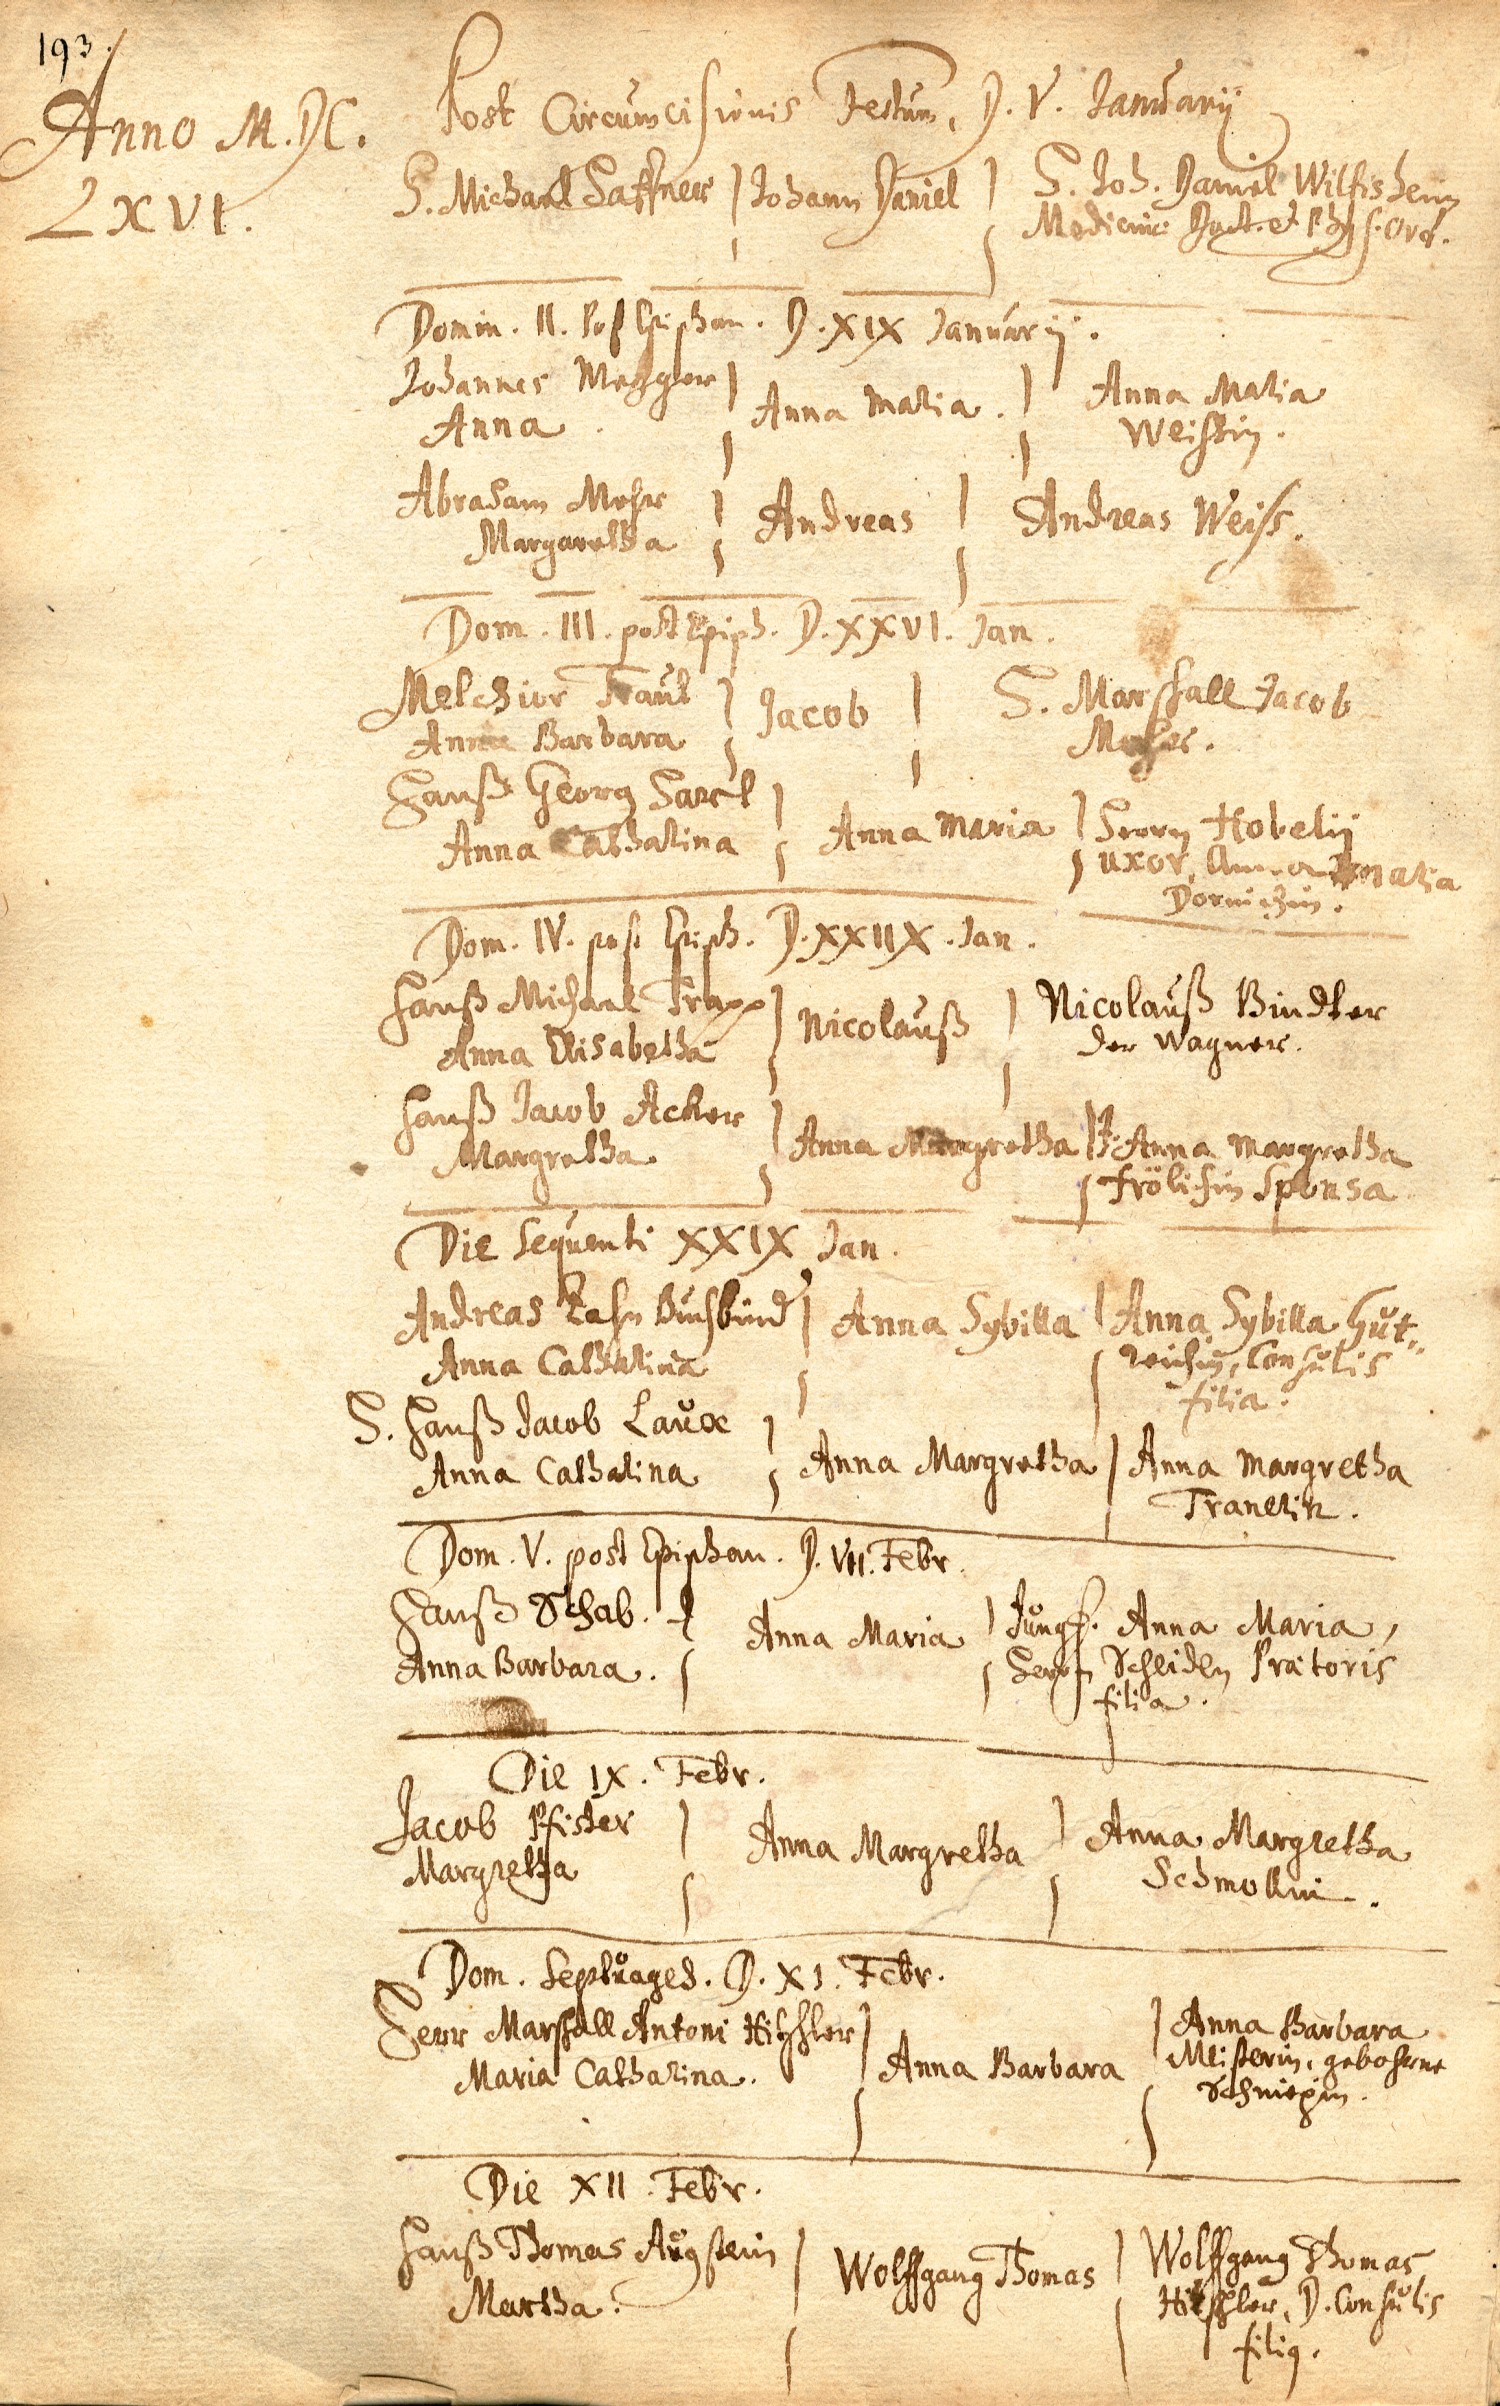 193.
Anno M.DC.
LXVI.
Post Circumcisionis Festum, D. V. Januarij
H. Michael Haffner | Johann Daniel | H. Joh. Daniel Wilfisheim
Medicinæ Doct. et Phys. Ord.
Domin. II. Post Epiphan. D. XIX Januarij.
Johannes Metzger | Anna Maria. | Anna Maria
Anna. Weissin.
Abraham Mohr | Andreas | Andreas Weiss.
Margaretha
Dom. III. post Epiph. D. XXVI. Jan.
Melchior Traut | Jacob | H. Marschall Jacob
Anna Barbara
Hanß Georg Hartl | Anna Maria | Herrn Hobelij
Anna Catharina uxor, Anna Maria
Dom. IV. post Epiph. D. XXIIX. Jan.
Hanß Michael Trapp | Nicolauß | Nicolauß Bindter
Anna Elisabetha der Wagner.
Hanß Jacob Acker | Anna Margretha | J. Anna Margretha
Margretha Frölichin Sponsa
Die sequenti XXIX Jan.
Andreas Hahn Buchbind | Anna Sybilla | Anna Sybilla Gut-
Anna Catharina reichin, Consulis
filia.
H. Hanß Jacob Laux | Anna Margretha | Anna Margretha
Anna Catharina
Dom. V. post Epiphan. D. VII. Febr.
Hanß Schab. | Anna Maria | Jungf. Anna Maria,
Anna Barbara. Herrn Scheiden Prætoris
filia.
Die IX. Febr.
Jacob Pfister | Anna Margretha | Anna Margretha
Margretha
Dom. Septuages. D. XI. Febr.
Herr Marschall Antoni Hitschler | Anna Barbara | Anna Barbara
Maria Catharina. Meisterin, gebohrne
Die XII. Febr.
Hanß Thomas Augstein | Wolffgang Thomas | Wolffgang Thomas
Martha. Hitschler, D. Consulis
filiq.